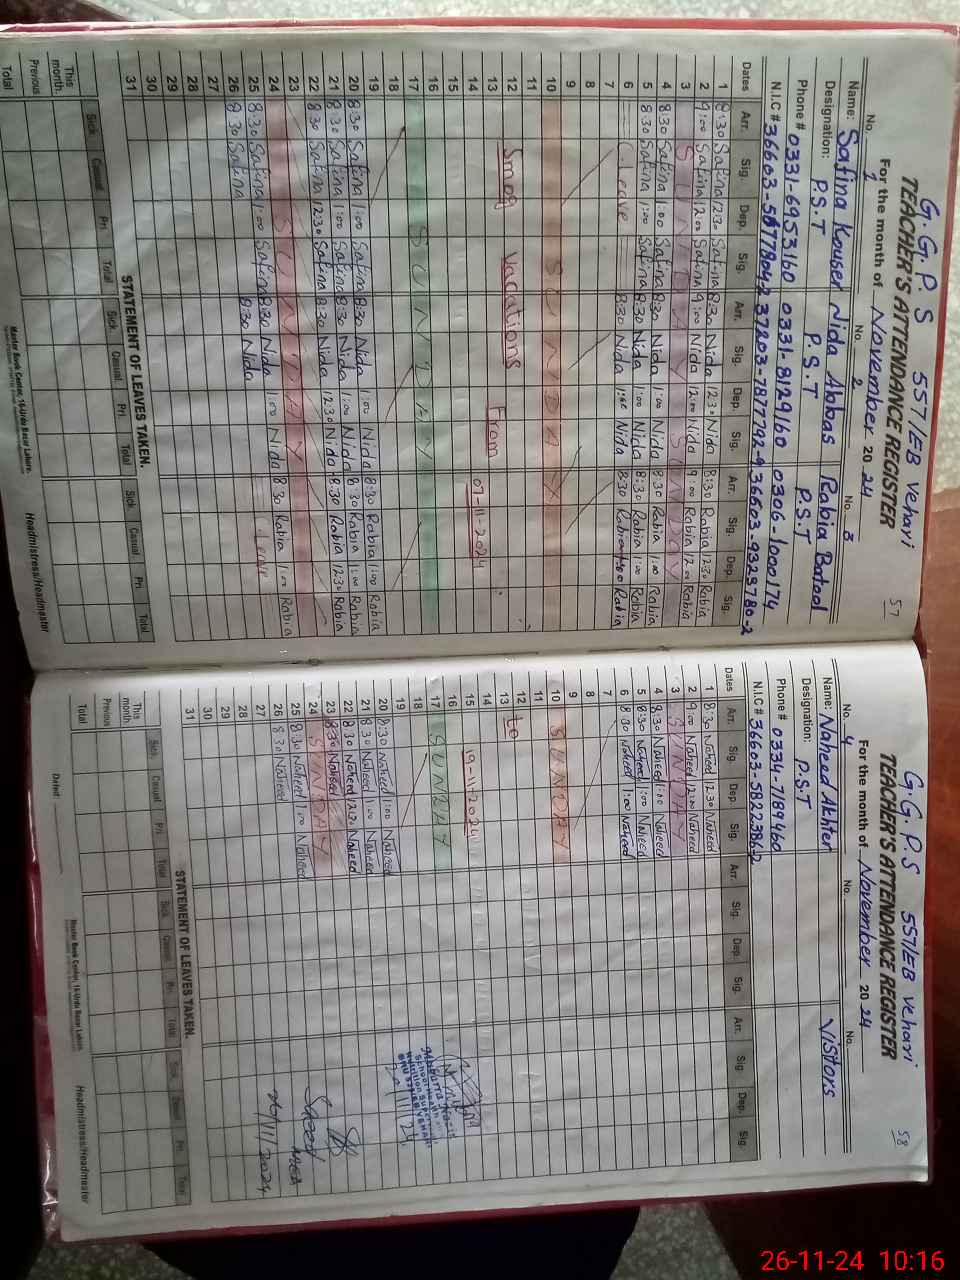 G.G.P.S 557/EB Vehari 57
TEACHER'S ATTENDANCE REGISTER
For the month of November 20 24
No. 1 No. 2 No. 3
Name: Safina Kouser Nida Abbas Rabia Batool
Designation: P.S.T P.S.T P.S.T
Phone # 0331-6953160 0331-8129160 0306-1000174
N.I.C #
Dates Arr. Sig. Dep. Sig. Arr. Sig. Dep. Sig. Arr. Sig. Dep. Sig.
1 8:30 Safina 12:30 Safina 8:30 Nida 12:30 Nida 8:30 Rabia 12:30 Rabia
2 9:00 Safina 12:00 Safina 9:00 Nida 12:00 Nida 9:00 Rabia 12:00 Rabia
3 SUNDAY SUNDAY
4 8:30 Safina 1:00 Safina 8:30 Nida 1:00 Nida 8:30 Rabia 1:00 Rabia
5 8:30 Safina 1:00 Safina 8:30 Nida 1:00 Nida 8:30 Rabia 1:00 Rabia
6 Leave 8:30 Nida 1:00 Nida 8:30 Rabia 1:00 Rabia
7
8
9
10 SUNDAY
11
12 Smog vacations From
13
14 07-11-2024
15
16
17 SUNDAY
18
19
20 8:30 Safina 1:00 Safina 8:30 Nida 1:00 Nida 8:30 Rabia 1:00 Rabia
21 8:30 Safina 1:00 Safina 8:30 Nida 1:00 Nida 8:30 Rabia 1:00 Rabia
22 8:30 Safina 12:30 Safina 8:30 Nida 12:30 Nida 8:30 Rabia 12:30 Rabia
23
24 SUNDAY
25 8:30 Safina 1:00 Safina 8:30 Nida 1:00 Nida 8:30 Rabia 1:00 Rabia
26 8:30 Safina 8:30 Nida Leave
27
28
29
30
31
STATEMENT OF LEAVES TAKEN.
Sick Casual Pri. Total Sick Casual Pri. Total Sick Casual Pri. Total
This month.
Previous
Total
Master Book Center, 16-Urdu Bazar Lahore. Headmistress/Headmaster
G.G.P.S 557/EB Vehari 58
TEACHER'S ATTENDANCE REGISTER
For the month of November 20 24
No. 4 No. No.
Name: Naheed Akhter Visitors
Designation: P.S.T
Phone # 0334-7189460
N.I.C #
Dates Arr. Sig. Dep. Sig. Arr. Sig. Dep. Sig. Arr. Sig. Dep. Sig.
1 8:30 Naheed 12:30 Naheed
2 9:00 Naheed 12:00 Naheed
3 SUNDAY
4 8:30 Naheed 1:00 Naheed
5 8:30 Naheed 1:00 Naheed
6 8:30 Naheed 1:00 Naheed
7
8
9
10 SUNDAY
11
12
13 to
14
15 19-11-2024
16
17 SUNDAY
18
19
20 8:30 Naheed 1:00 Naheed
21 8:30 Naheed 1:00 Naheed
22 8:30 Naheed 12:30 Naheed
23
24 SUNDAY
25 8:30 Naheed 1:00 Naheed
26 8:30 Naheed
27
28
29
30
31
School Health
Nutrition Supervisor
VEHARI
Saeed
26/11/2024
STATEMENT OF LEAVES TAKEN.
Sick Casual Pri. Total Sick Casual Pri. Total Sick Casual Pri. Total
This month
Previous
Total
Dated: Master Book Center, 16-Urdu Bazar Lahore. Headmistress/Headmaster
26-11-24 10:16